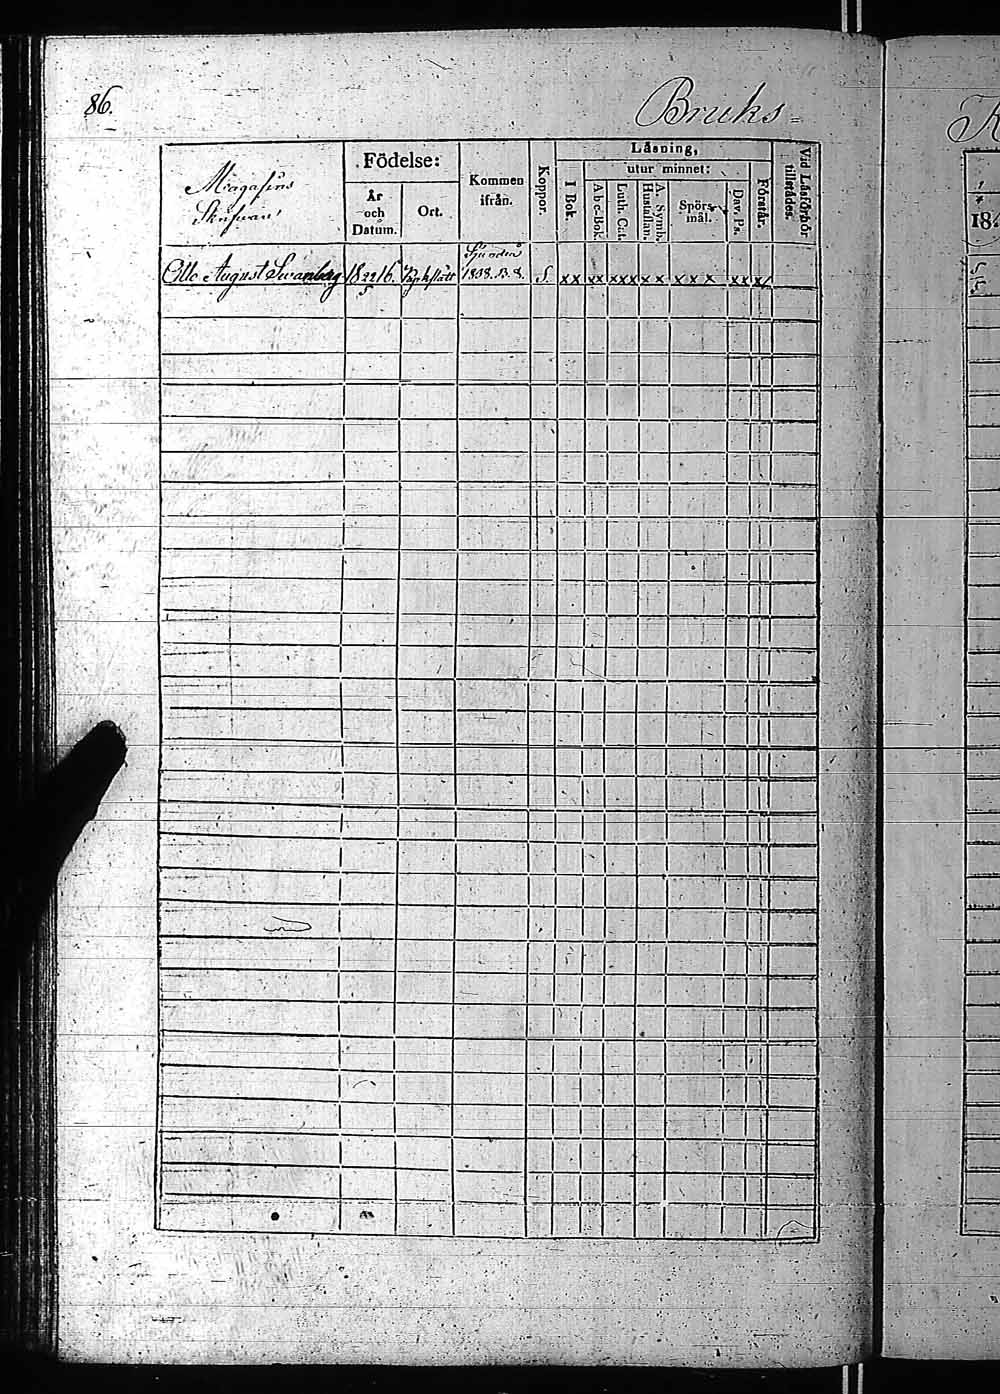 86.
Bruks-
Magasins
Skrifvare
Födelse:
År
och
Datum.
Ort.
Kommen
ifrån.
Koppor.
Läsning,
I Bok.
utur minnet:
A b c-Bok.
Luth. Cat.
A. Symb.
Hustaflan.
Spörs-
mål.
Dav. Ps.
Förstår.
Vid Läsförhör
tillstädes.
Otto August Swanberg 18 22/5 16. 1838. 13. 8. S. xx xx xxx xx xxx xx x
18